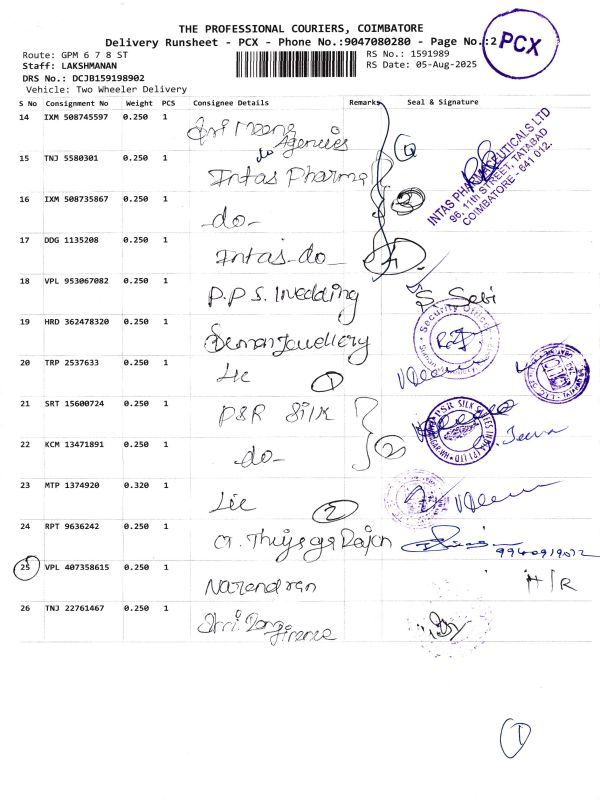 THE PROFESSIONAL COURIERS, COIMBATORE
Delivery Runsheet - PCX - Phone No.:9047080280 - Page No.:2
PCX
Route: GPM 6 7 8 ST
RS No.: 1591989
Staff: LAKSHMANAN
RS Date: 05-Aug-2025
DRS No.: DCJB159198902
Vehicle: Two Wheeler Delivery
S No Consignment No Weight PCS Consignee Details Remarks Seal & Signature
14 IXM 508745597 0.250 1
Agencies
INTAS PHARMACEUTICALS LTD
96, 11th STREET, TATABAD
COIMBATORE - 641 012.
15 TNJ 5580301 0.250 1 Intas Pharma
16 IXM 508735867 0.250 1 -do-
17 DDG 1135208 0.250 1 Intas-do- 4
18 VPL 953067082 0.250 1 P.P.S. Wedding
19 HRD 362478320 0.250 1 Jewellery
Security Officer
20 TRP 2537633 0.250 1 Lic 1
21 SRT 15600724 0.250 1 PSR Silk
22 KCM 13471891 0.250 1 -do- 2
23 MTP 1374920 0.320 1 Lic 2
24 RPT 9636242 0.250 1 G. Thiyaga Rajan
25 VPL 407358615 0.250 1 Narendran H/R
26 TNJ 22761467 0.250 1
1